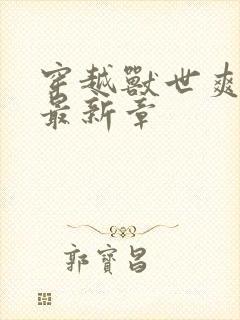 穿越獸世爽
最新章
郭寶昌